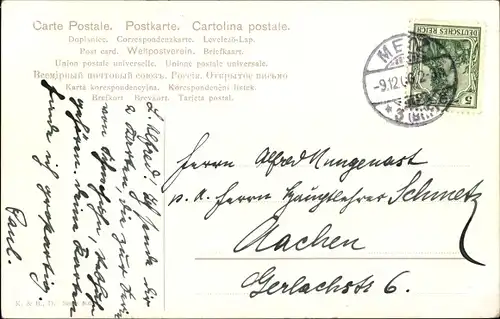 Carte Postale. Postkarte. Cartolina postale.
Dopisnice. Correspondenzkarte. Levelezö-Lap.
Post card. Weltpostverein. Briefkaart.
Union postale universelle. Unione postale universale.
Всемірный почтовый союзъ. Россія. Открытое письмо
Karta korespondencyjna. Korespondenční lístek.
Brefkort Brevkort. Tarjeta postal.
DEUTSCHES REICH
5
-9.12.
Herrn Alfred Nungenast
p. A. Herrn Hauptlehrer Schmetz
Aachen
Gerlachstr 6.
L. Alfred! Ich sende dir
2 Karten die zur Serie
von
gehören. Deine Karten
finde ich großartig.
Paul.
K. & B., D.